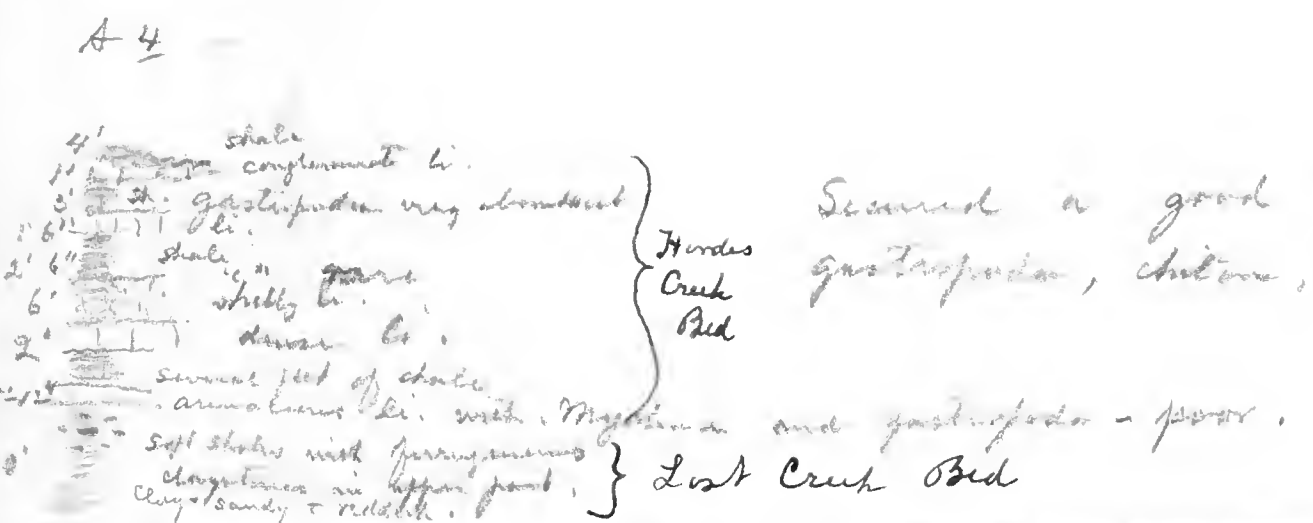 A-4
4' shale
1' conglomerate li.
3' sh. Gastropoda very abundant
1' 6" li.
2' 6" shale
6' shelly li.
2' li.
several feet of shale
arenaceous li. with Myalina and gastropoda - poor.
soft shales with ferrugineous
claystones in upper part.
Clay - sandy + reddish.
Hordes
Creek
Bed
Lost Creek Bed
Secured a good
gastropoda, chiton,